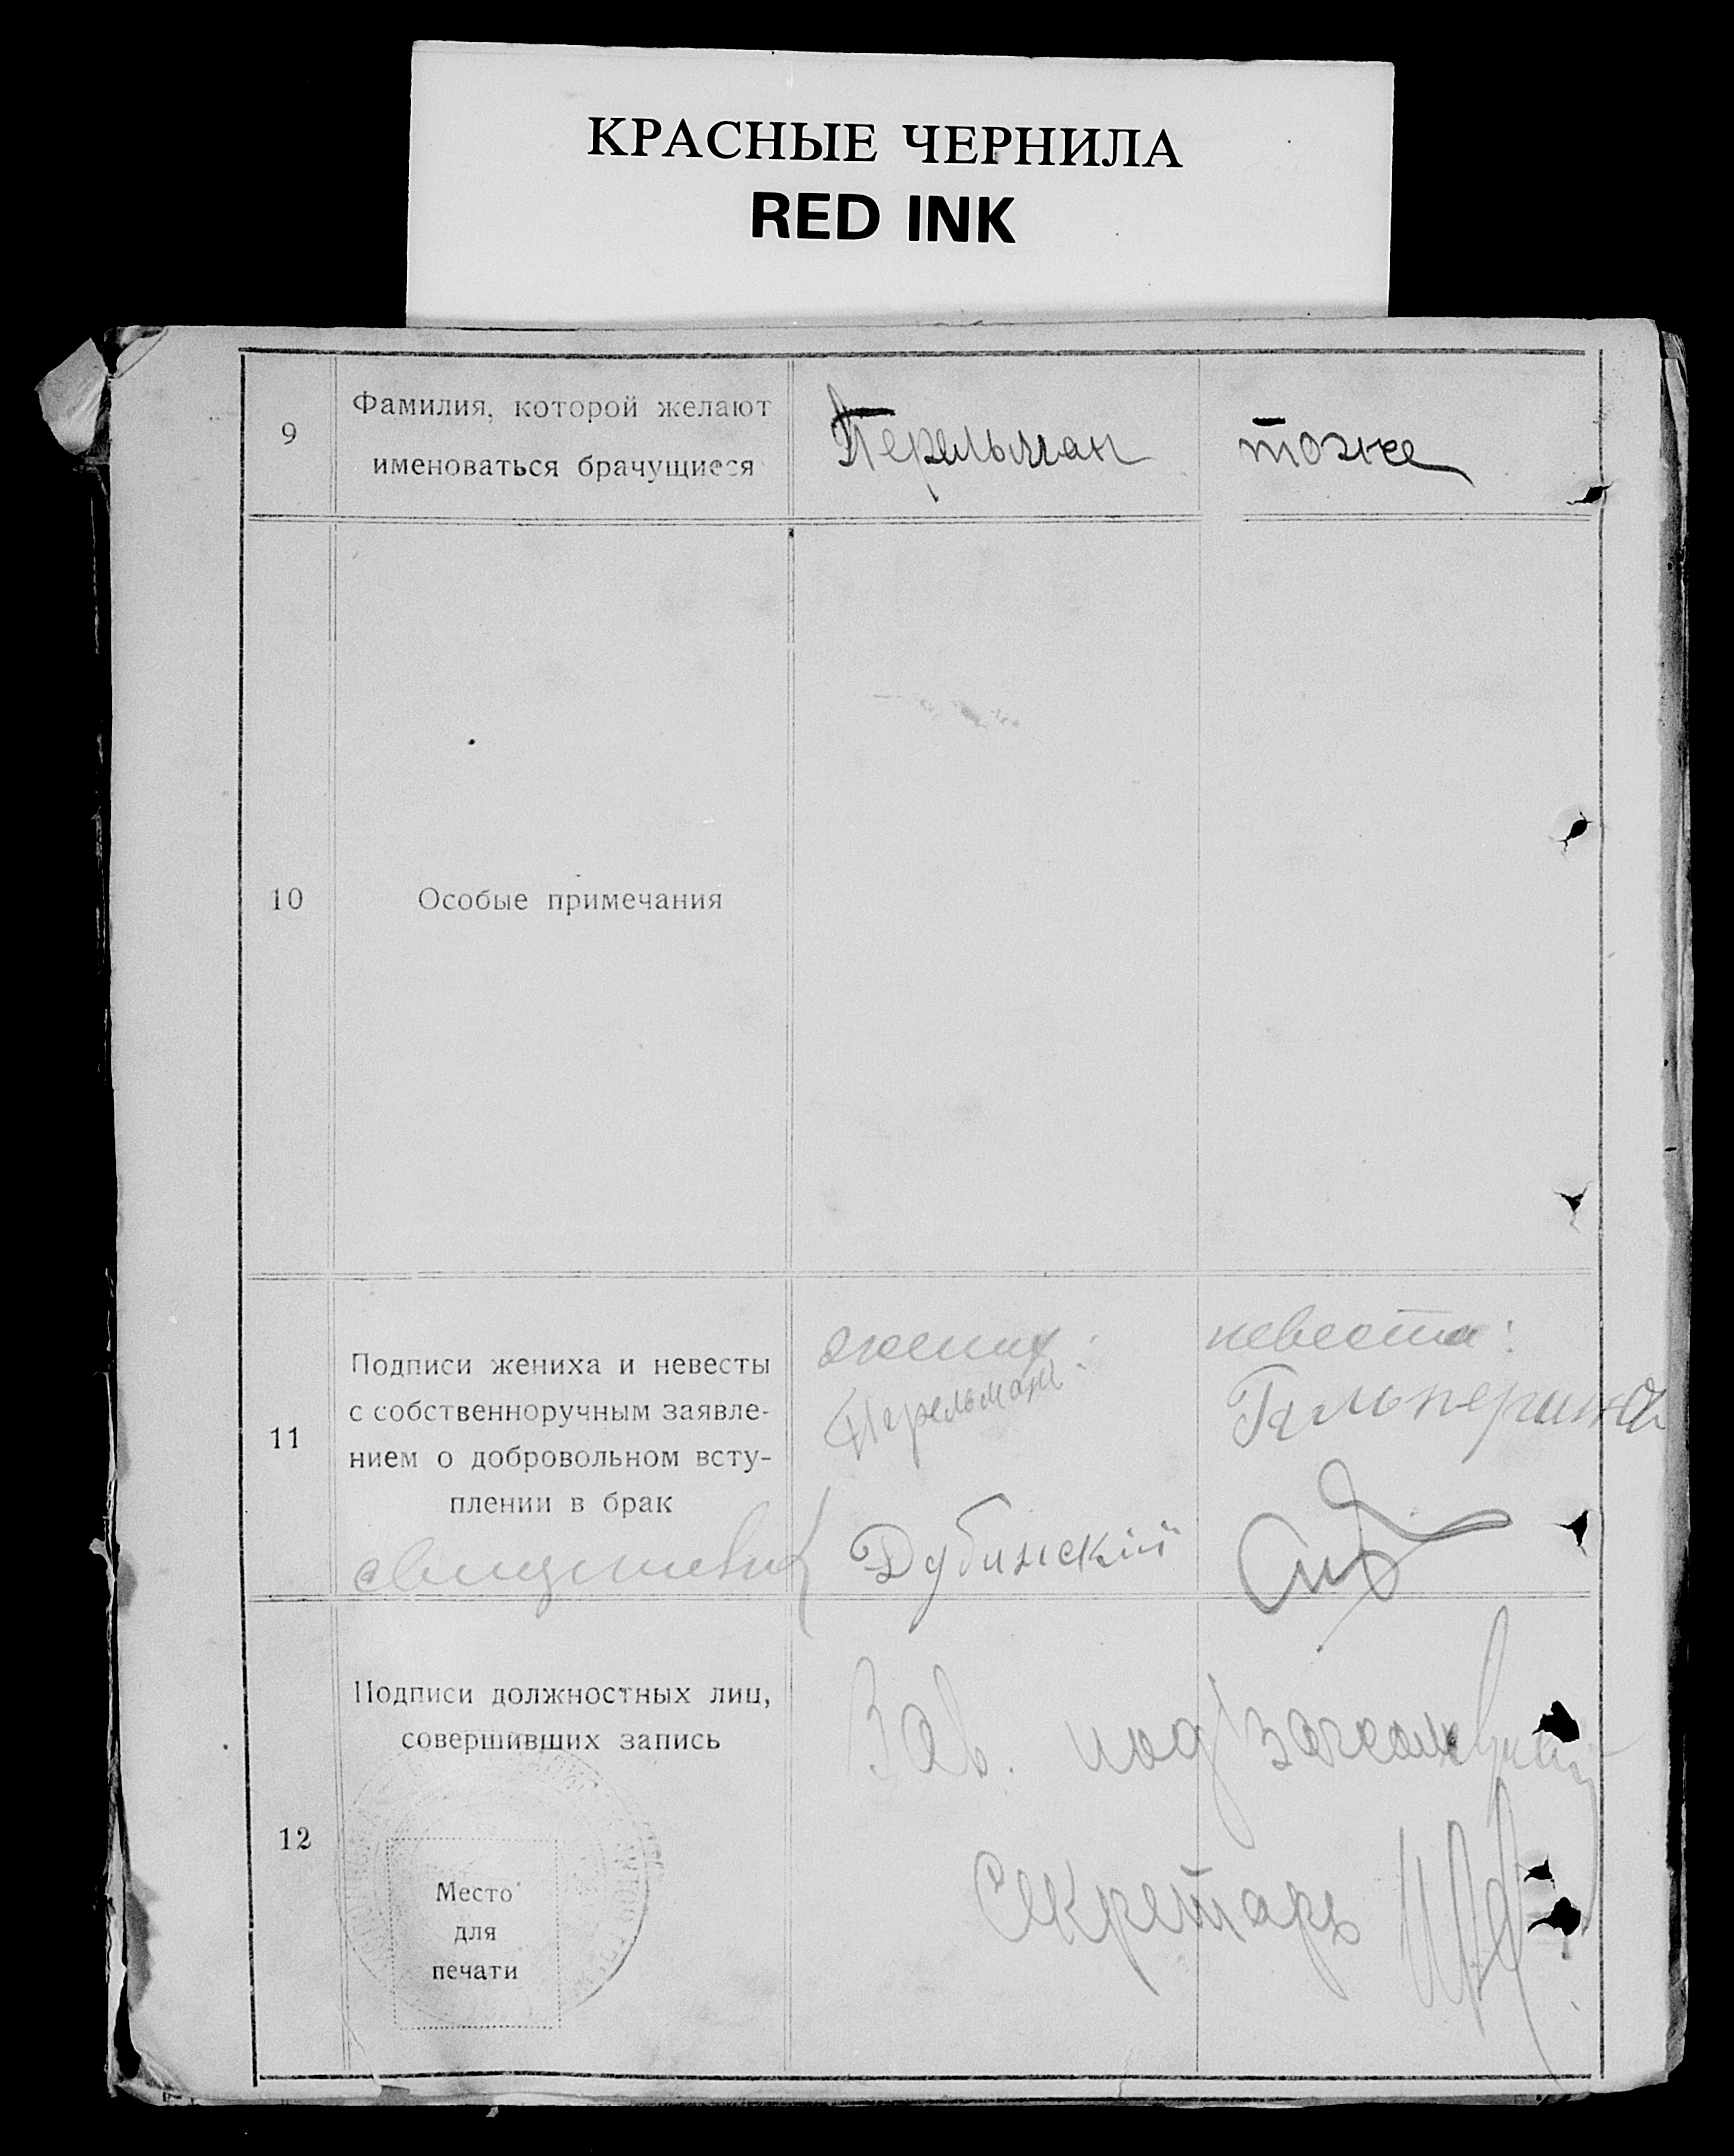 КРАСНЫЕ ЧЕРНИЛА
RED INK
9
Фамилия, которой желают
именоваться брачущиеся
Перельман
тоже
10
Особые примечания
11
Подписи жениха и невесты
с собственноручным заявле-
нием о добровольном всту-
плении в брак
жених:
Перельман
невеста:
Гальперина
Дубинский
12
Подписи должностных лиц,
совершивших запись
Место
для
печати
Зав. под
Секретарь